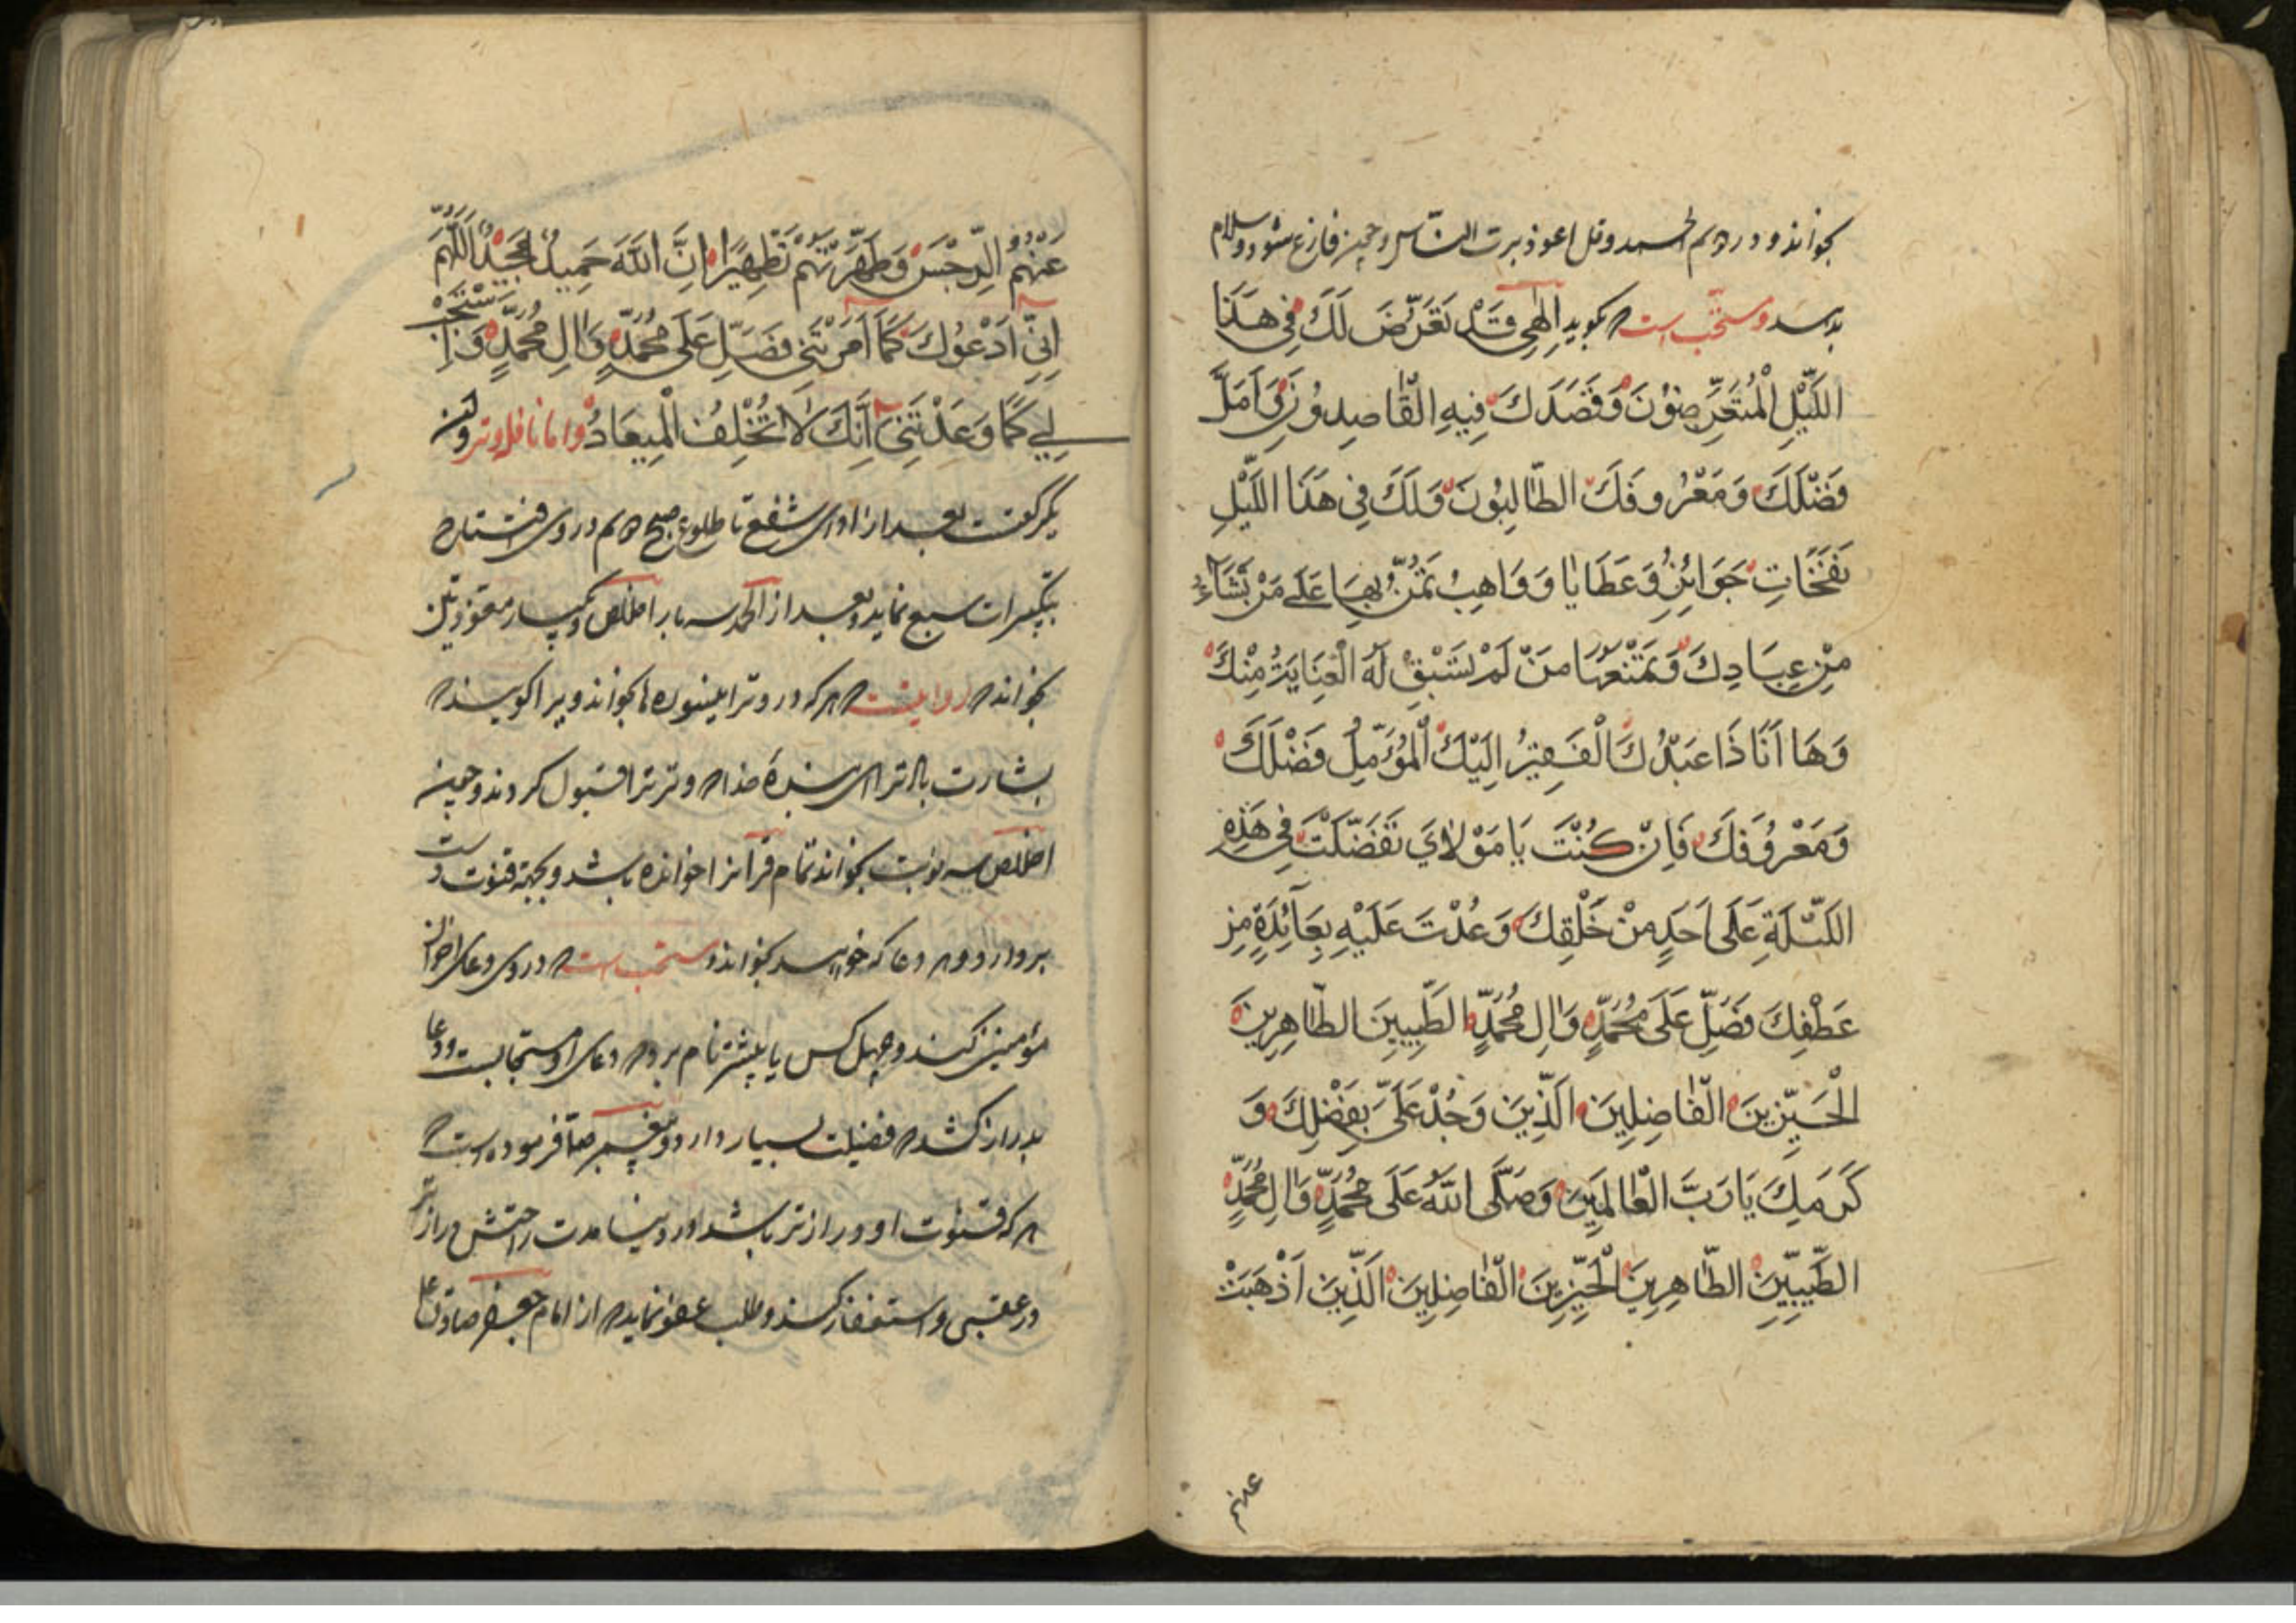 بخواند و در دوم الحمد و قل اعوذ برب الناس و چون فارغ شود و سلام
بدهد و مستحب است که بگوید اِلٰهِی تَعَرَّضَ لَكَ فِی هَذَا
اللَّیْلِ الْمُتَعَرِّضُوْنَ وَقَصَدَكَ فِیهِ الْقَاصِدُونَ وَ اَمَلَ
فَضْلَكَ وَمَعْرُوفَكَ الطَّالِبُونَ وَلَكَ فِی هَذَا اللَّیْلِ
نَفَحَاتٌ جَوَائِزُ وَعَطَایَا وَ مَوَاهِبُ تَمُنُّ بِهَا عَلَی مَنْ تَشَاءُ
مِنْ عِبَادِكَ وَتَمْنَعُهَا مَنْ لَمْ تَسْبِقْ لَهُ الْعِنَایَةُ مِنْكَ
وَهَا اَنَا ذَا عَبْدُكَ الْفَقِیرُ اِلَیْكَ الْمُؤَمِّلُ فَضْلَكَ
وَمَعْرُوفَكَ فَاِنْ كُنْتَ یَا مَوْلَایَ تَفَضَّلْتَ فِی هَذِهِ
اللَّیْلَةِ عَلَی اَحَدٍ مِنْ خَلْقِكَ وَعُدْتَ عَلَیْهِ بِعَائِدَةٍ مِنْ
عَطْفِكَ فَصَلِّ عَلَی مُحَمَّدٍ وَاٰلِ مُحَمَّدٍ الطَّیِّبِینَ الطَّاهِرِینَ
الْخَیِّرِینَ الْفَاضِلِینَ الَّذِینَ وَجُدْ عَلَیَّ بِفَضْلِكَ وَ
كَرَمِكَ یَا رَبَّ الْعَالَمِینَ وَصَلَّی اللّٰهُ عَلَی مُحَمَّدٍ وَاٰلِ مُحَمَّدٍ
الطَّیِّبِینَ الطَّاهِرِینَ الْخَیِّرِینَ الْفَاضِلِینَ الَّذِینَ اَذْهَبْتَ
عنهم
عَنْهُمُ الرِّجْسَ وَطَهَّرْتَهُمْ تَطْهِیرًا اِنَّ اللّٰهَ حَمِیدٌ مَجِیدٌ اَللّٰهُمَّ
اِنِّی اَدْعُوكَ كَمَا اَمَرْتَنِی فَصَلِّ عَلَی مُحَمَّدٍ وَاٰلِ مُحَمَّدٍ وَاسْتَجِبْ
لِی كَمَا وَعَدْتَنِی اِنَّكَ لَا تُخْلِفُ الْمِیعَادَ و اما نافلهٔ وتر و آن
یکرکعتست بعد از ادای شفع تا طلوع صبح دوم در وی افتتاح
بتکبیرات سبع نماید و بعد از الحمد سه بار اخلاص و یکبار معوذتین
بخواند که روایتست که هر که در وتر اینسوره‌ها بخواند ویرا گویند که
بشارت باد ترا ای بندهٔ خدا که وتر ترا قبول کردند و چون
اخلاص سه نوبت بخواند تمام قرآنرا خوانده باشد و بجهة قنوت دست
بردارد و هر دعا که خواهد بخواند و مستحب است که در وی دعای اخوان
مؤمنین کند و چهل کس یا بیشتر نام برد که دعای او مستجابست و دعا
بدراز کشد که فضیلت بسیار دارد و پیغمبر ص فرموده است که
هر که قنوت او درازتر باشد در دنیا مدت راحتش درازتر
در عقبی و استغفار کند و طلب عفو نماید که از امام جعفر صادق ع